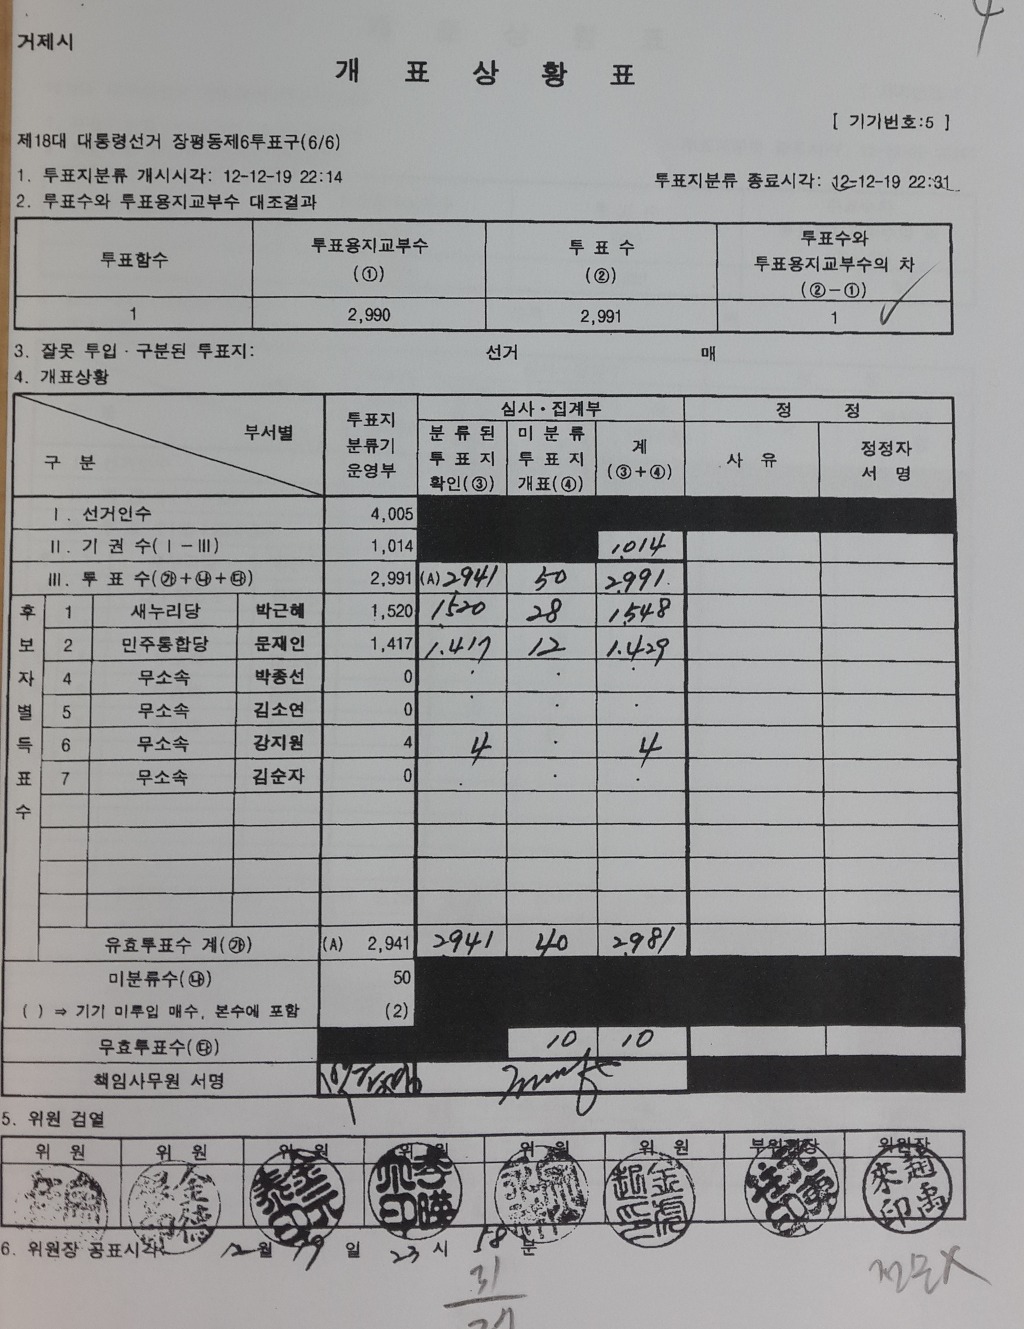 4
거제시
개 표 상 황 표
[ 기기번호:5 ]
제18대 대통령선거 장평동제6투표구(6/6)
1. 투표지분류 개시시각: 12-12-19 22:14 투표지분류 종료시각: 12-12-19 22:31
2. 투표수와 투표용지교부수 대조결과
투표함수 투표용지교부수 (①) 투 표 수 (②) 투표수와 투표용지교부수의 차 (②-①)
1 2,990 2,991 1
3. 잘못 투입·구분된 투표지: 선거 매
4. 개표상황
구 분 부서별 투표지 분류기 운영부 심사·집계부 정 정
분 류 된 투 표 지 확인(③) 미 분 류 투 표 지 개표(④) 계 (③+④) 사 유 정정자 서 명
Ⅰ. 선거인수 4,005
Ⅱ. 기 권 수(Ⅰ-Ⅲ) 1,014 1014
Ⅲ. 투 표 수(㉮+㉯+㉰) 2,991 (A) 2941 50 2991
후보자별득표수
1 새누리당 박근혜 1,520 1520 28 1548
2 민주통합당 문재인 1,417 1.417 12 1.429
4 무소속 박종선 0
5 무소속 김소연 0
6 무소속 강지원 4 4 4
7 무소속 김순자 0
유효투표수 계(㉮) (A) 2,941 2941 40 2981
미분류수(㉯) 50
( ) ⇒ 기기 미투입 매수, 본수에 포함 (2)
무효투표수(㉰) 10 10
책임사무원 서명
5. 위원 검열
위 원 위 원 위 원 위 원 위 원 위 원 부위원장 위원장
6. 위원장 공표시각: 12월 19 일 23 시 58 분
31